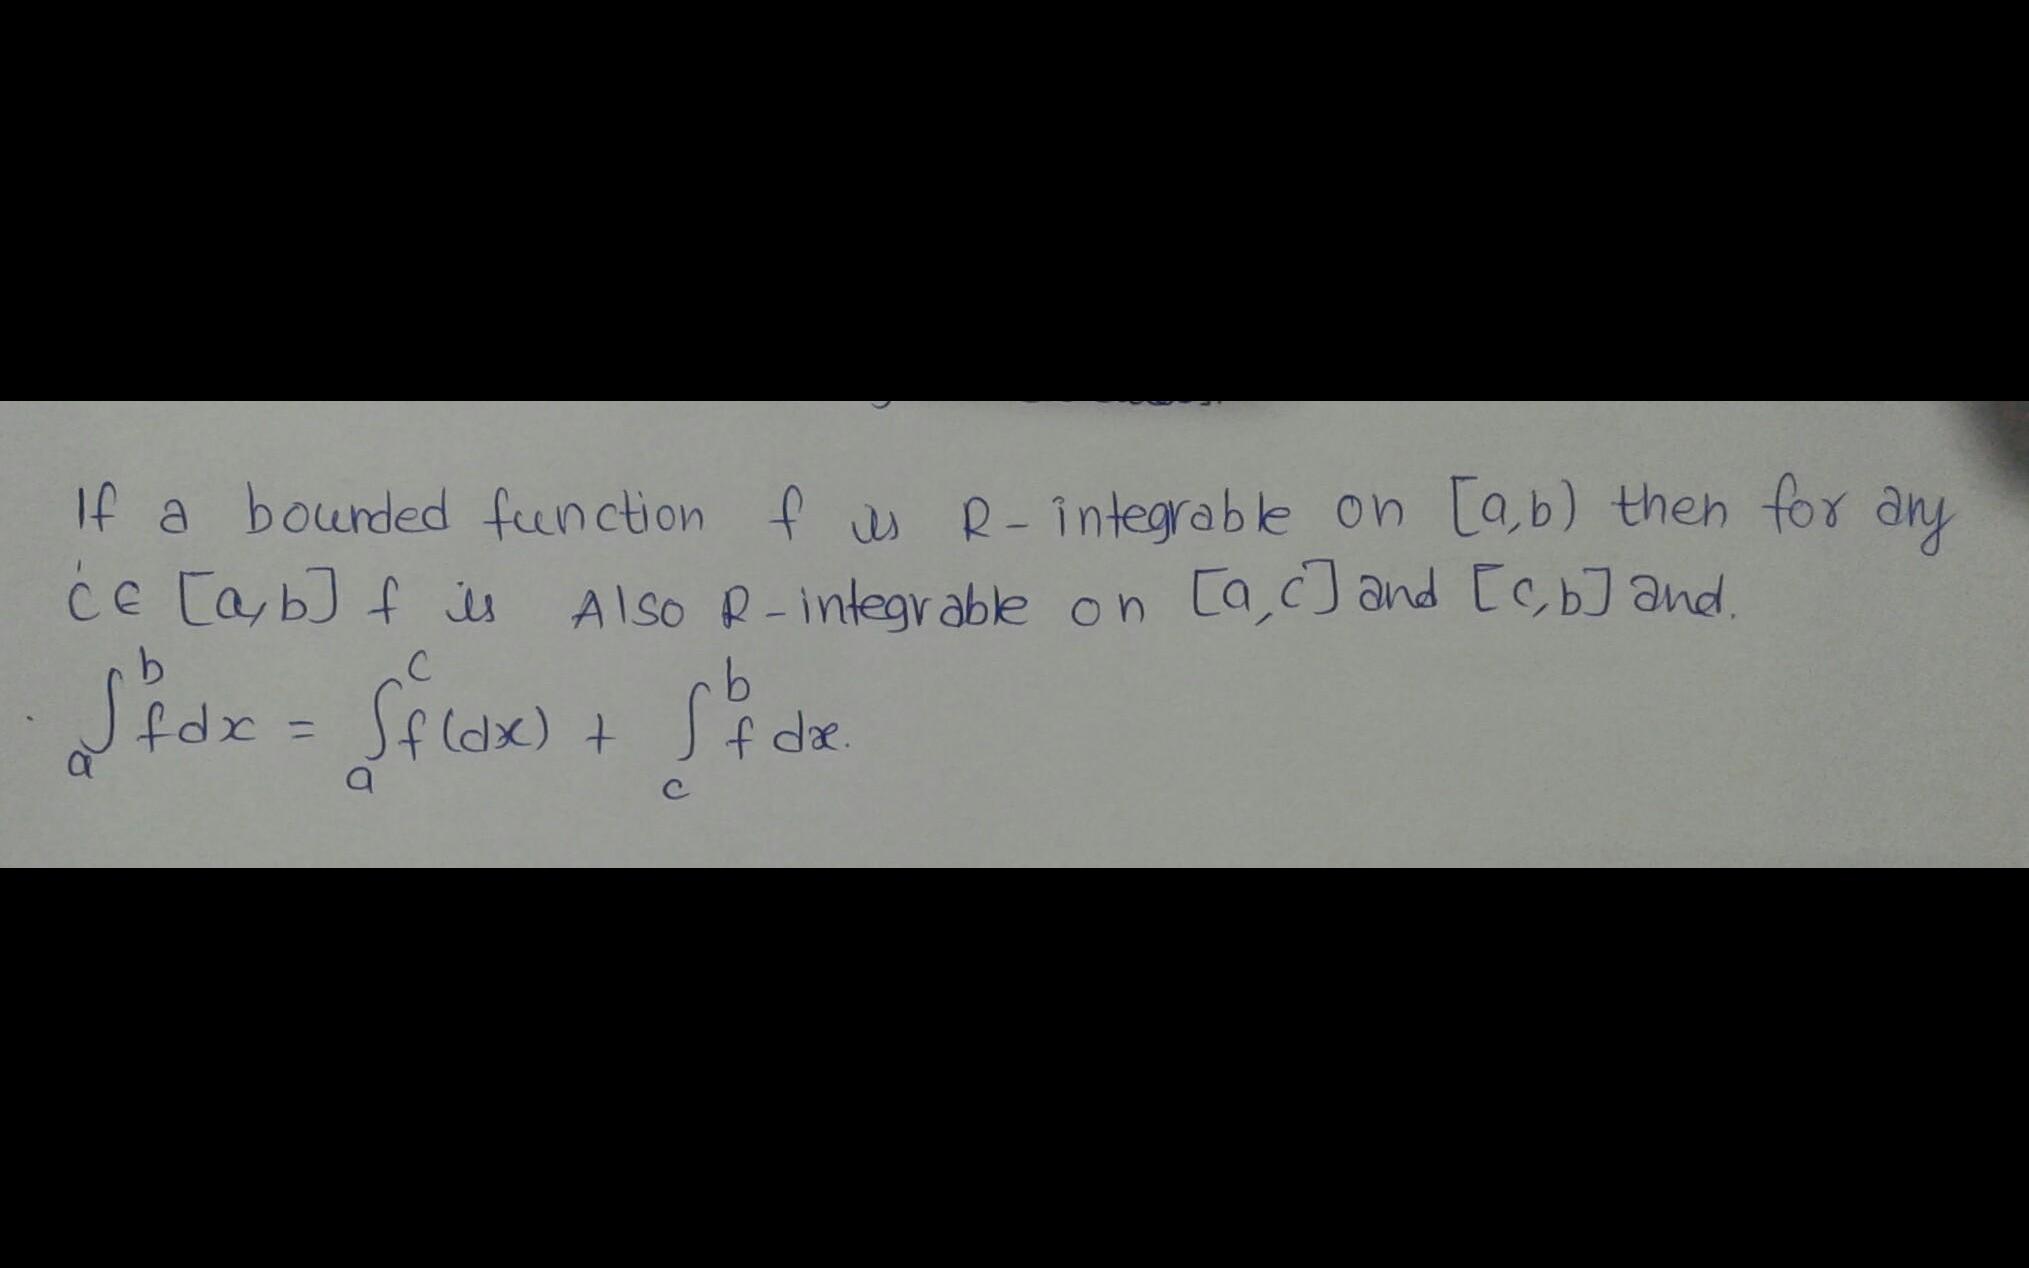 If a bounded function f is R-integrable on [a,b) then for any
c ∈ [a,b] f is Also R-integrable on [a,c] and [c,b] and.
∫_a^b f dx = ∫_a^c f(dx) + ∫_c^b f dx.